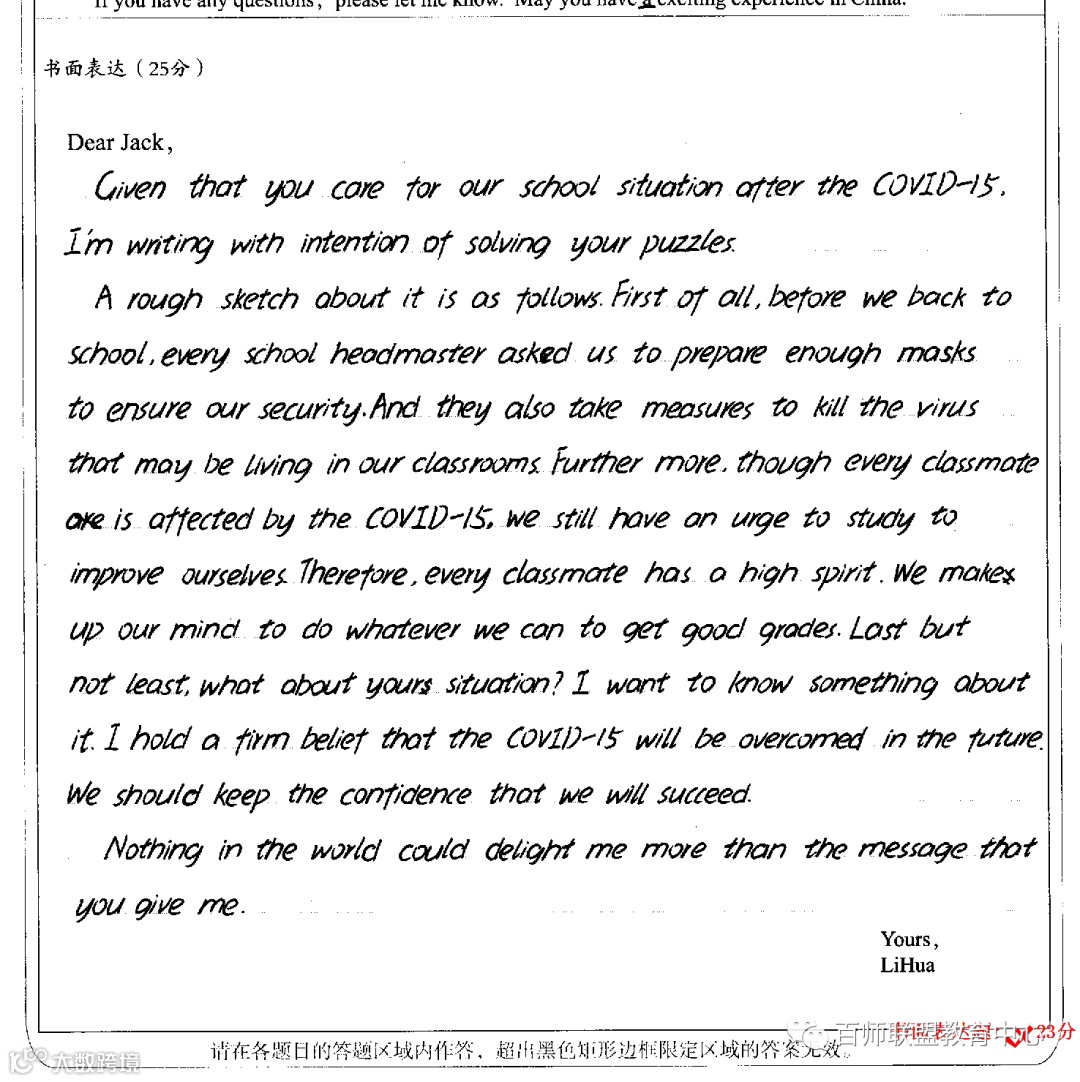 If you have any questions, please let me know. May you have a exciting experience in China.
书面表达（25分）
Dear Jack,
Given that you care for our school situation after the COVID-15.
I'm writing with intention of solving your puzzles.
A rough sketch about it is as follows. First of all, before we back to
school, every school headmaster asked us to prepare enough masks
to ensure our security. And they also take measures to kill the virus
that may be living in our classrooms. Further more, though every classmate
is affected by the COVID-15, we still have an urge to study to
improve ourselves. Therefore, every classmate has a high spirit. We make
up our mind to do whatever we can to get good grades. Last but
not least, what about your situation? I want to know something about
it. I hold a firm belief that the COVID-15 will be overcomed in the future.
We should keep the confidence that we will succeed.
Nothing in the world could delight me more than the message that
you give me.
Yours,
LiHua
百师联盟教育中心
23分
请在各题目的答题区域内作答，超出黑色矩形边框限定区域的答案无效。
大数跨境